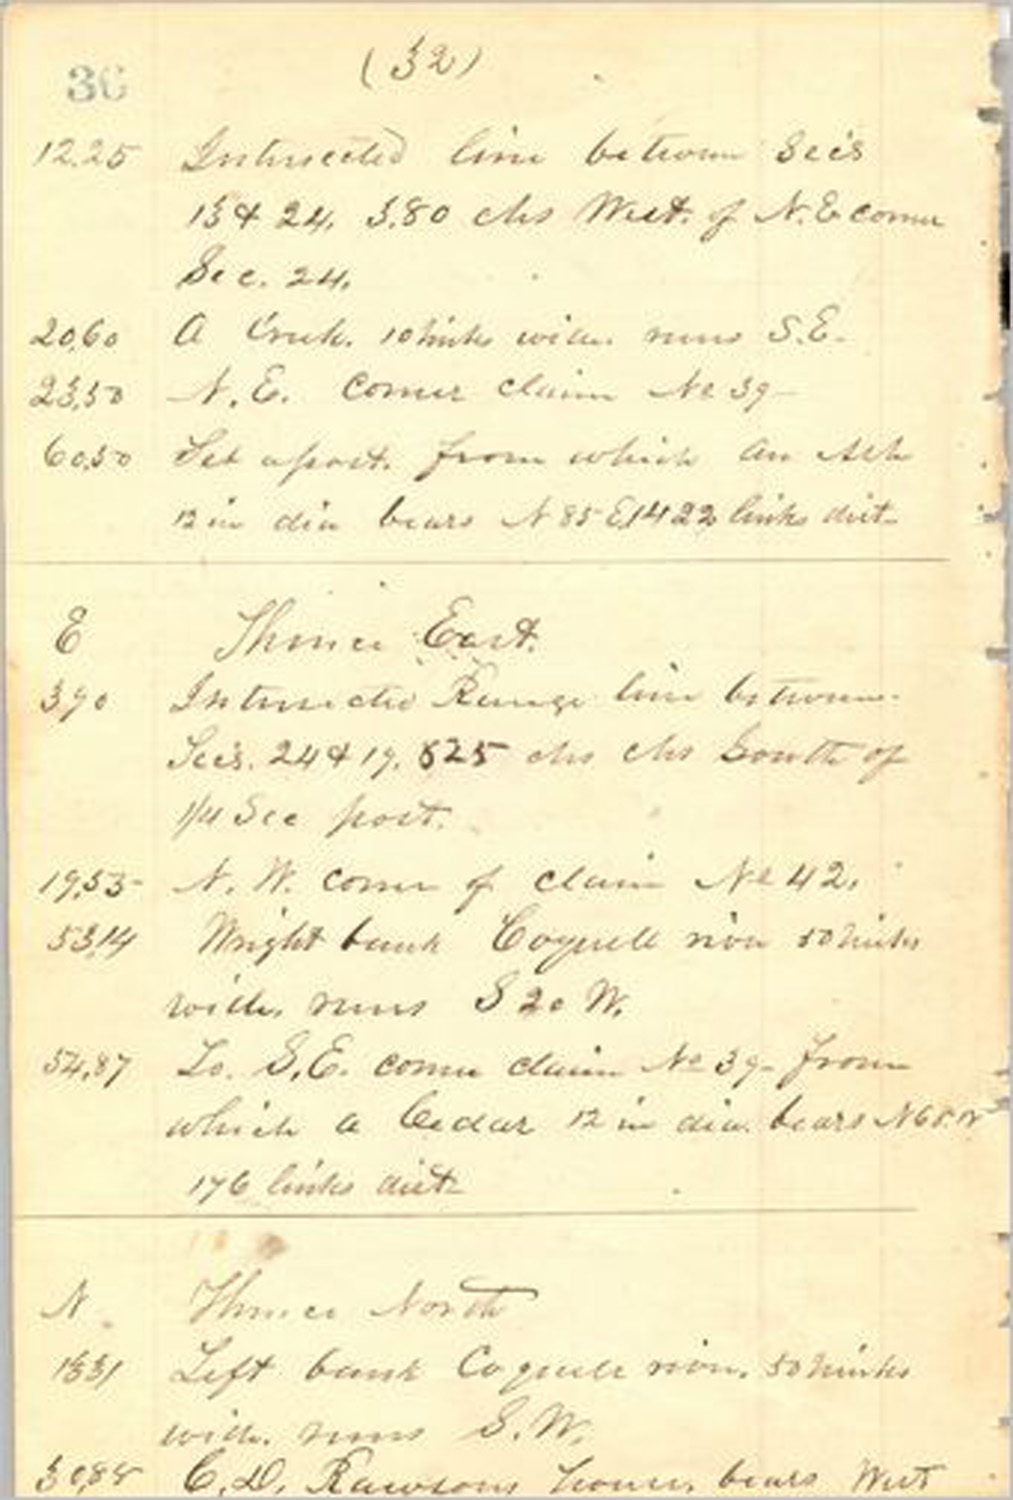 36
(32)
12.25 Intersected line between Sec's
13 & 24, 3.80 chs West. of N.E corner
Sec. 24.
20,60 A Creek. 10 links wide. runs S.E.
23,50 N.E. Corner Claim No 39
60,50 Set a post. from which an Ash
12 in dia bears N 85 E, 14 22 links dist
E Thence East.
3,90 Intersected Range line between
Secs. 24 & 19. 825 chs chs South of
1/4 Sec post.
19,53 N.W. corner of claim No 42.
53,14 Wright bank Coquell river 50 links
wide. runs S 20 W.
54,87 To. S.E. corner claim No 39 from
which a Cedar 12 in dia. bears N 65 W
176 links dist
N Thence North
1331 Left bank Coquell river. 50 links
wide. runs S.W.
3088 C.D. Rawsons house bears West